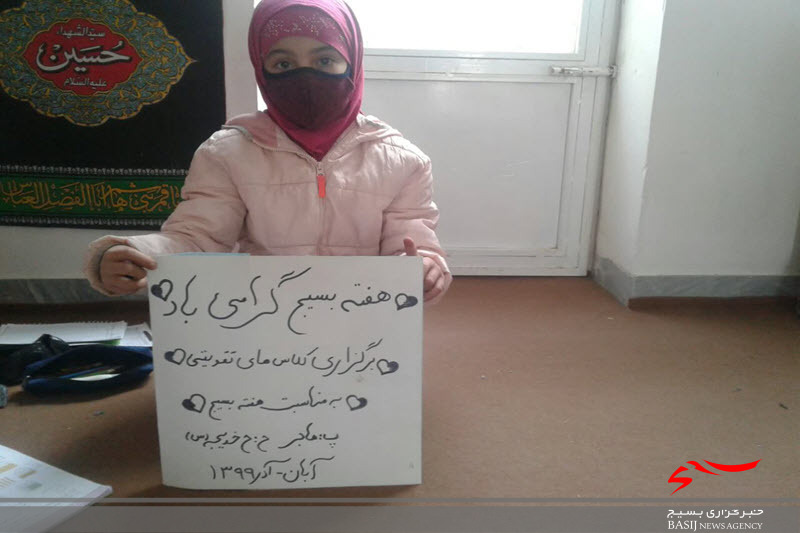 سیدالشهداء
حسین
علیه السلام
هفته بسیج گرامی باد
برگزاری کلاس های تقویتی
به مناسبت هفته بسیج
پ: هاجر ح: ح خدیجه (س)
آبان - آذر ۱۳۹۹
خبرگزاری بسیج
BASIJ NEWS AGENCY